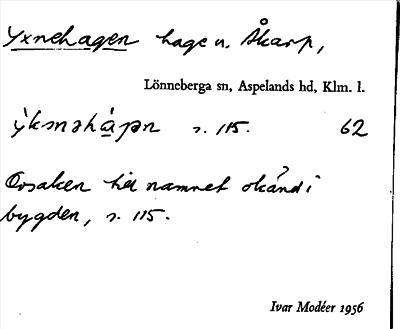 Yxnehagen hage u. Åkarp,
Lönneberga sn, Aspelands hd, Klm. l.
s. 115. 62
Orsaken till namnet okänd i
bygden, s. 115.
Ivar Modéer 1956